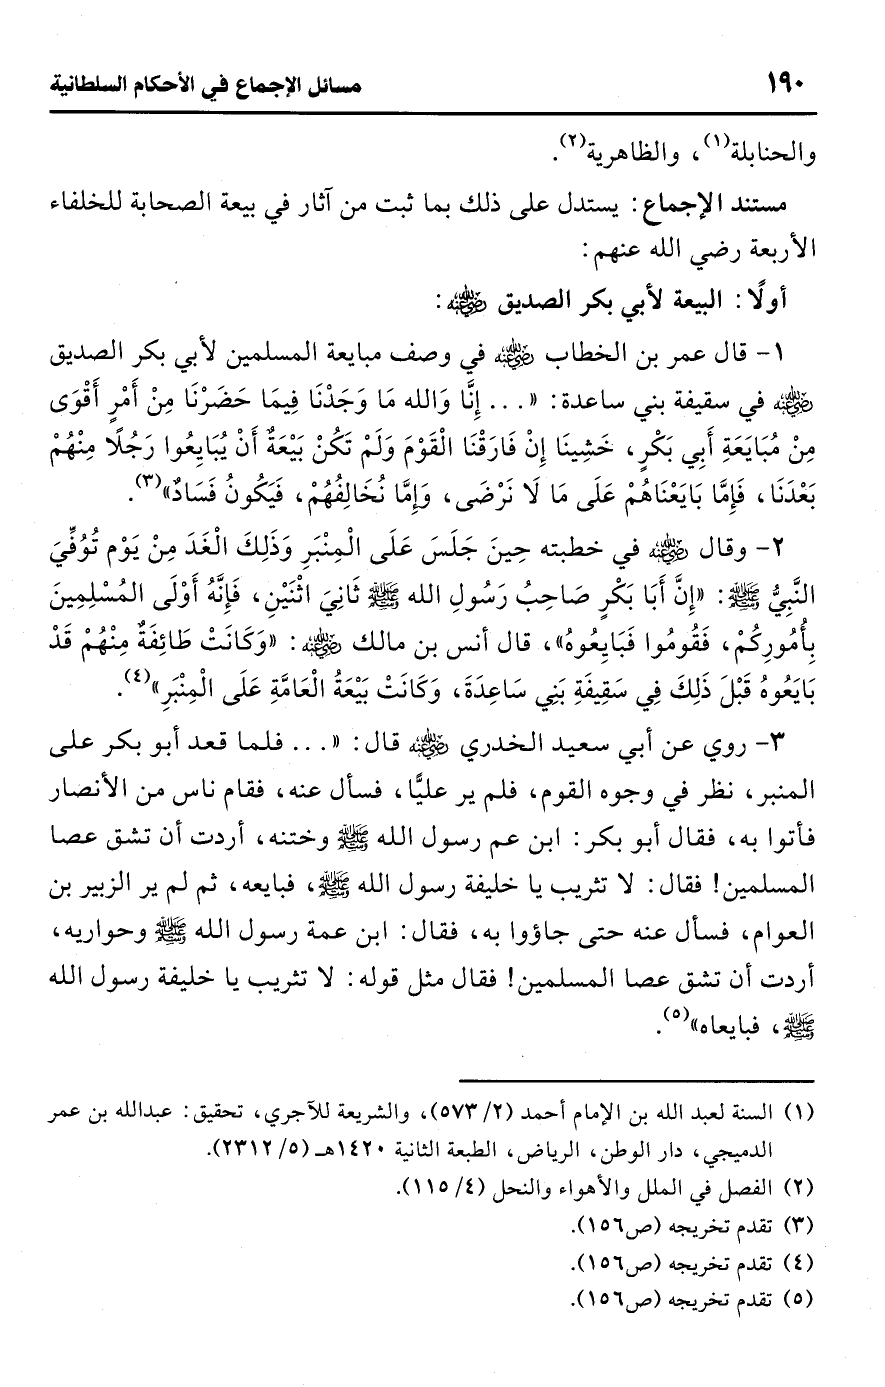 ١٩٠ مسائل الإجماع في الأحكام السلطانية
والحنابلة(١)، والظاهرية(٢).
مستند الإجماع: يستدل على ذلك بما ثبت من آثار في بيعة الصحابة للخلفاء
الأربعة رضي الله عنهم:
أولًا: البيعة لأبي بكر الصديق رضي الله عنه:
١- قال عمر بن الخطاب رضي الله عنه في وصف مبايعة المسلمين لأبي بكر الصديق
رضي الله عنه في سقيفة بني ساعدة: «... إِنَّا وَالله مَا وَجَدْنَا فِيمَا حَضَرْنَا مِنْ أَمْرٍ أَقْوَى
مِنْ مُبَايَعَةِ أَبِي بَكْرٍ، خَشِينَا إِنْ فَارَقْنَا الْقَوْمَ وَلَمْ تَكُنْ بَيْعَةٌ أَنْ يُبَايِعُوا رَجُلًا مِنْهُمْ
بَعْدَنَا، فَإِمَّا بَايَعْنَاهُمْ عَلَى مَا لَا نَرْضَى، وَإِمَّا نُخَالِفُهُمْ، فَيَكُونُ فَسَادٌ»(٣).
٢- وقال رضي الله عنه في خطبته حِينَ جَلَسَ عَلَى الْمِنْبَرِ وَذَلِكَ الْغَدَ مِنْ يَوْم تُوُفِّيَ
النَّبِيُّ ﷺ: «إِنَّ أَبَا بَكْرٍ صَاحِبُ رَسُولِ الله ﷺ ثَانِيَ اثْنَيْنِ، فَإِنَّهُ أَوْلَى المُسْلِمِينَ
بِأُمُورِكُمْ، فَقُومُوا فَبَايِعُوهُ»، قال أنس بن مالك رضي الله عنه: «وَكَانَتْ طَائِفَةٌ مِنْهُمْ قَدْ
بَايَعُوهُ قَبْلَ ذَلِكَ فِي سَقِيفَةِ بَنِي سَاعِدَةَ، وَكَانَتْ بَيْعَةُ الْعَامَّةِ عَلَى الْمِنْبَرِ»(٤).
٣- روي عن أبي سعيد الخدري رضي الله عنه قال: «... فلما قعد أبو بكر على
المنبر، نظر في وجوه القوم، فلم ير عليًّا، فسأل عنه، فقام ناس من الأنصار
فأتوا به، فقال أبو بكر: ابن عم رسول الله ﷺ وختنه، أردت أن تشق عصا
المسلمين! فقال: لا تثريب يا خليفة رسول الله ﷺ، فبايعه، ثم لم ير الزبير بن
العوام، فسأل عنه حتى جاؤوا به، فقال: ابن عمة رسول الله ﷺ وحواريه،
أردت أن تشق عصا المسلمين! فقال مثل قوله: لا تثريب يا خليفة رسول الله
ﷺ، فبايعاه»(٥).
(١) السنة لعبد الله بن الإمام أحمد (٢/ ٥٧٣)، والشريعة للآجري، تحقيق: عبدالله بن عمر
الدميجي، دار الوطن، الرياض، الطبعة الثانية ١٤٢٠هـ (٥/ ٢٣١٢).
(٢) الفصل في الملل والأهواء والنحل (٤/ ١١٥).
(٣) تقدم تخريجه (ص١٥٦).
(٤) تقدم تخريجه (ص١٥٦).
(٥) تقدم تخريجه (ص١٥٦).